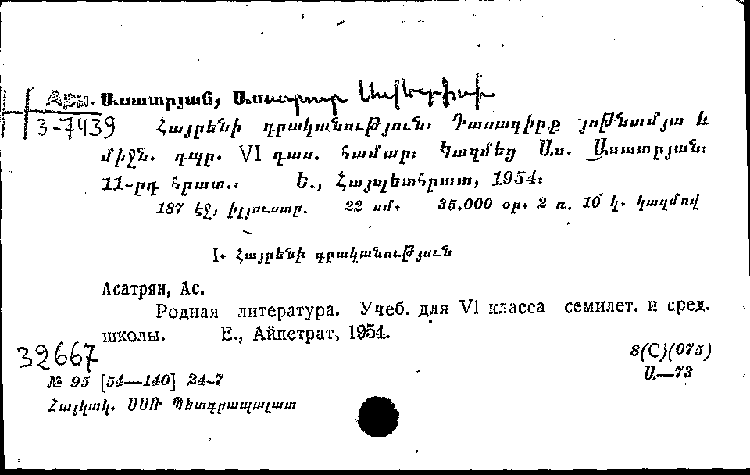 Арм. Ասատրյան, Ասատուր
3-7439 Հայրենի գրականություն։ Դասագիրք յոթնամյա և
միջն. դպր. VI դաս. համար։ Կազմեց Աս. Ասատրյան։
11-րդ հրատ.։ Ե., Հայպետհրատ, 1954։
187 էջ, իլյուստր. 22 սմ. 35.000 օր. 2 ռ. 10 կ. կազմով
I. Հայրենի գրականություն
Асатрян, Ас.
Родная литература. Учеб. для VI класса семилет. и сред.
школы. Е., Айпетрат, 1954.
32667
8(С)(075)
№ 95 [54—140] 24-7
Ա—73
Հայկակ. ՍՍՌ Պետգրապալատ